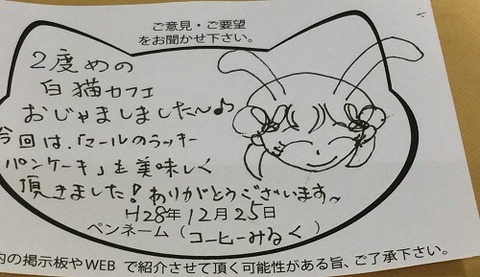 ご意見・ご要望
をお聞かせ下さい。
2度めの
白猫カフェ
おじゃましました〜♪
今回は、「マールのラッキー
パンケーキ」を美味しく
頂きました!ありがとうございます〜
H28年12月25日
ペンネーム(コーヒーみるく)
内の掲示板やWEBで紹介させて頂く可能性がある旨、ご了承下さい。